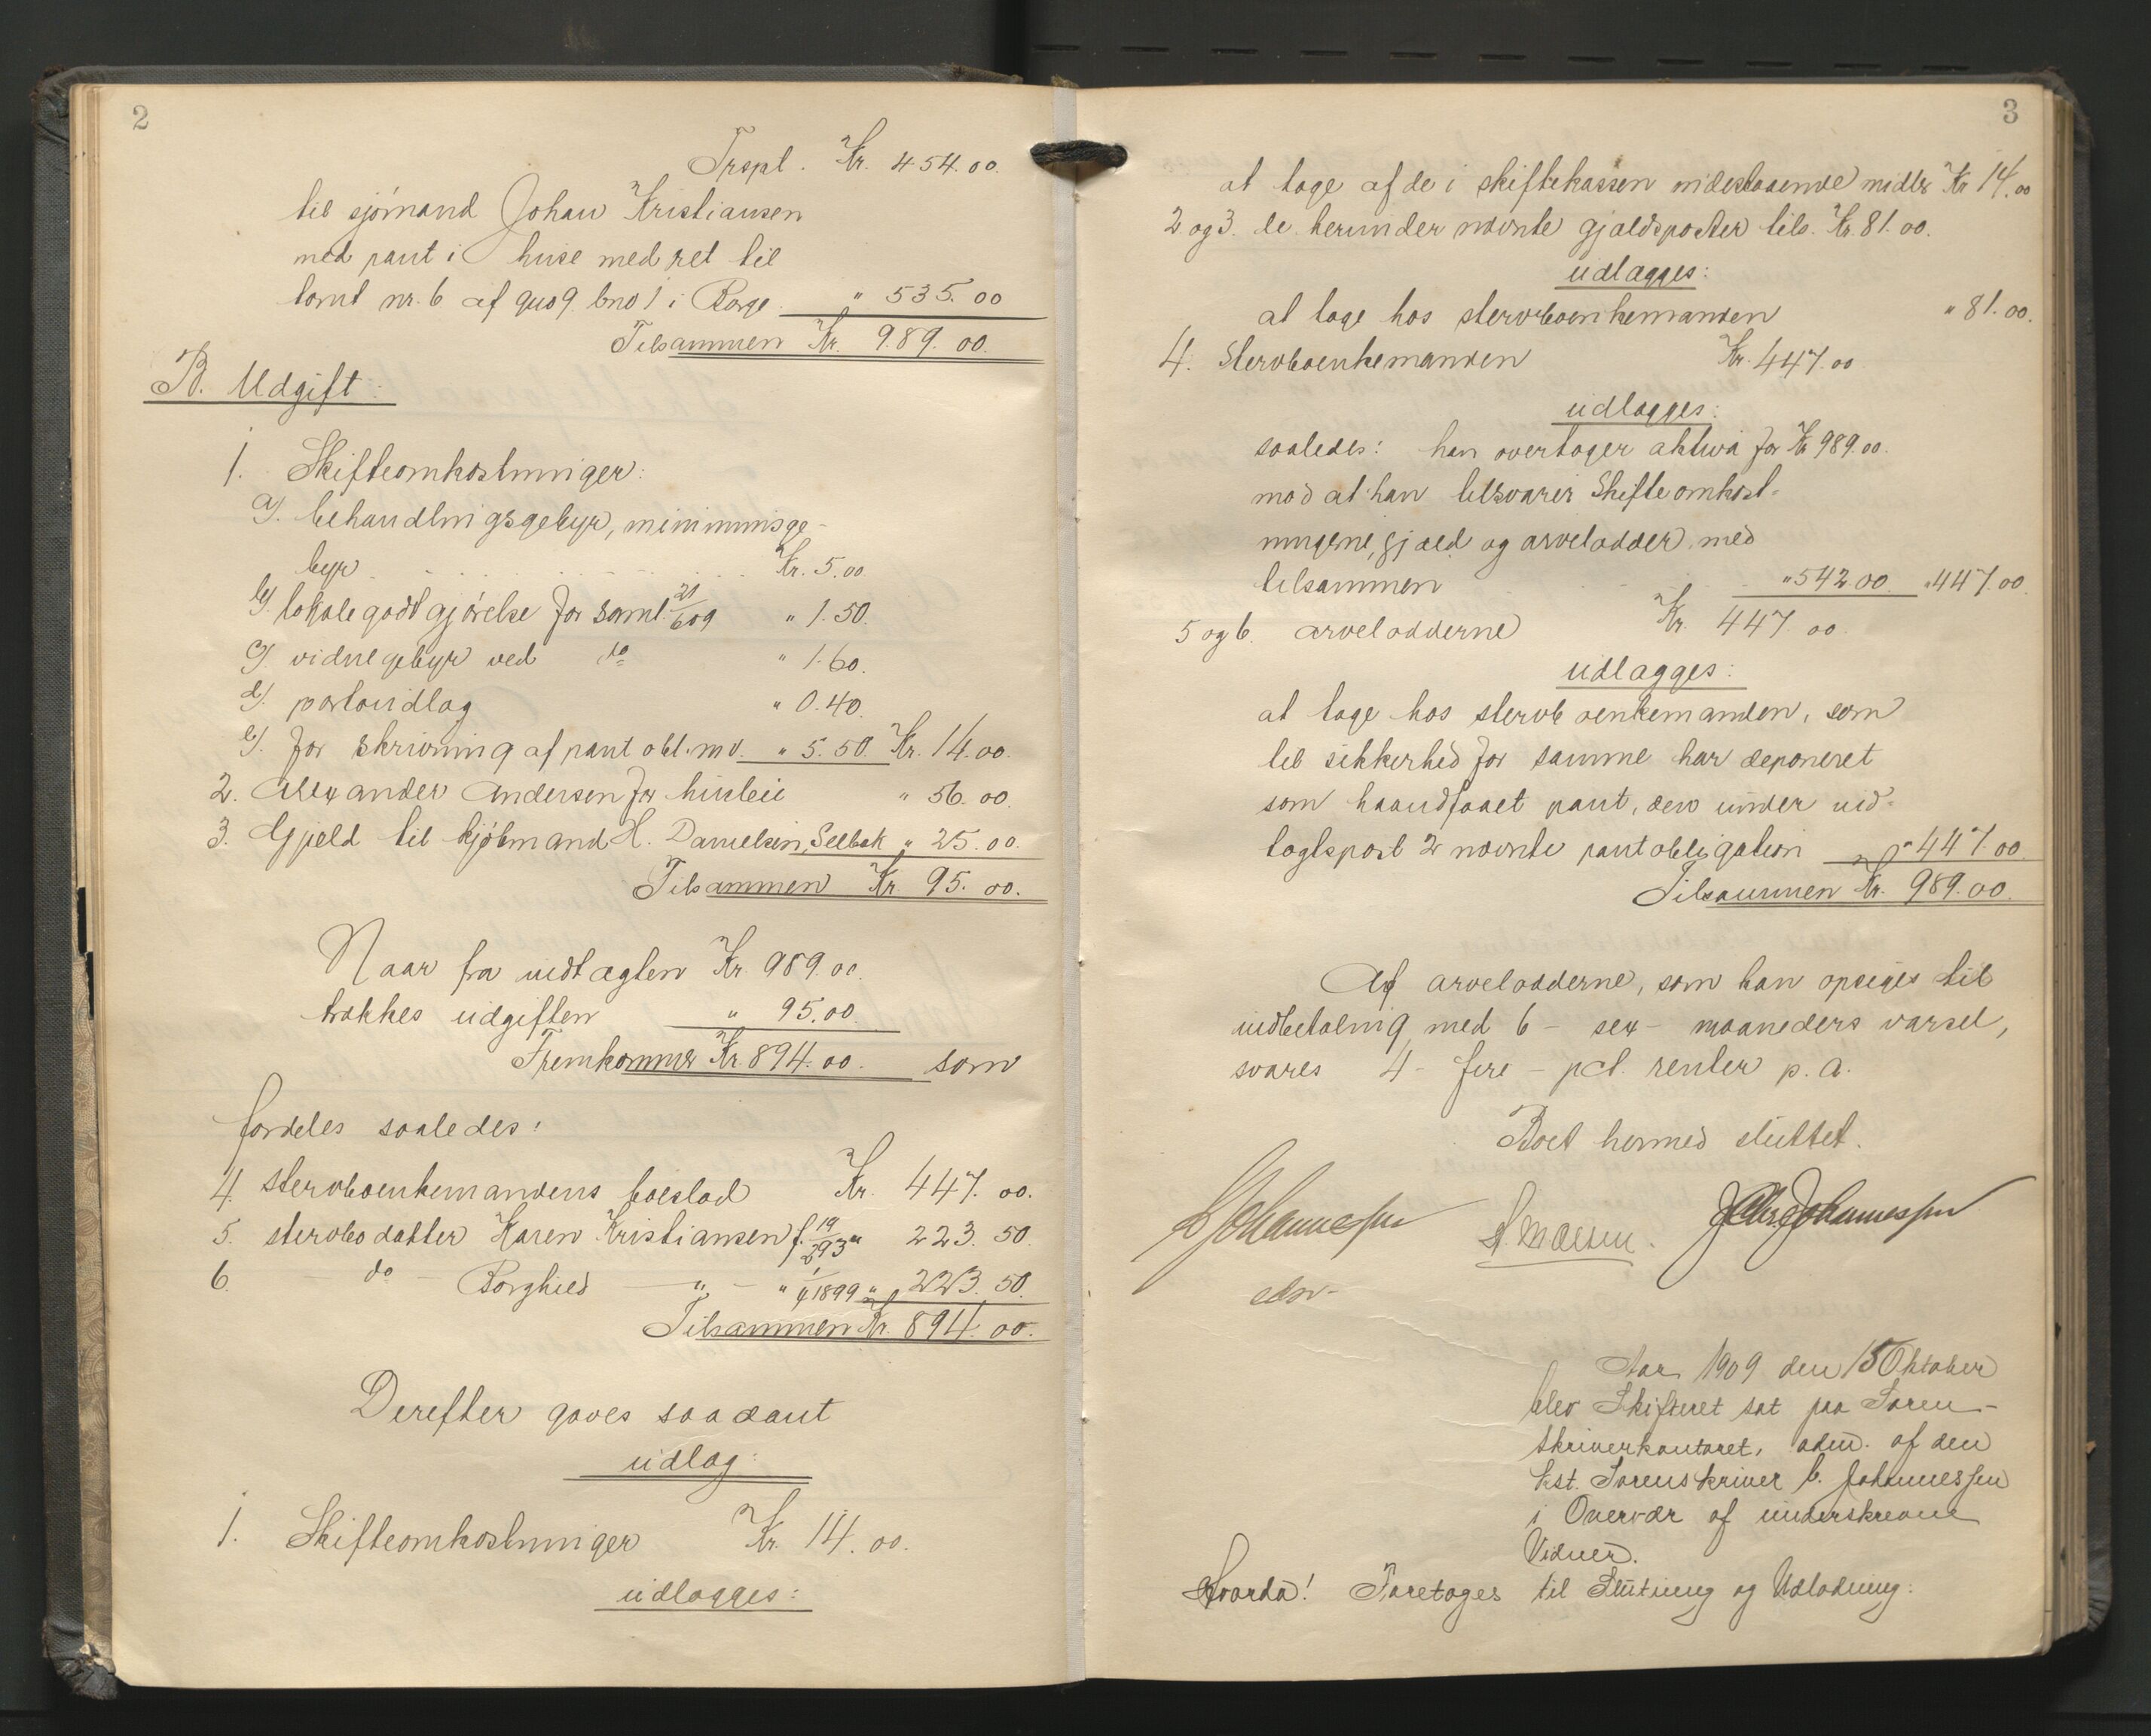 2
Trspt. Kr. 454.00.
til sjømand Johan Kristiansen
med pant i huse med ret til
tomt nr. 6 af gno 9. bno 1 i Borge " 535.00
Tilsammen Kr. 989.00.
B. Udgift:
1. Skifteomkostninger:
a). behandlingsgebyr, minimumsge-
byr Kr. 5.00
b). lokalegodtgjørelse for saml. 21/6 09 " 1.50.
c). vidnegebyr ved do " 1.60.
d). portoudlæg " 0.40.
e). for skrivning af pantobl. m v. " 5.50. Kr. 14.00.
2. Alexander Andersen for husleie " 56.00.
3. Gjeld til kjøbmand H. Danielsen, Selbak " 25.00.
Tilsammen Kr. 95.00.
Naar fra indtægten Kr. 989.00.
trækkes udgiften " 95.00.
Fremkommer Kr. 894.00. som
fordeles saaledes:
4. stervboenkemandens boeslod Kr. 447.00.
5. stervbodatter Karen Kristiansen f. 19/2 93 " 223.50.
6. do Borghild " " 1/4 1899 " 223.50.
Tilsammen Kr. 894.00.
Derefter gaves saadant
udlæg:
1. Skifteomkostninger Kr. 14.00.
udlægges:
3
at tage af de i skiftekassen indestaaende midler Kr 14.00
2 og 3. de herunder nævnte gjældsposter tils. Kr. 81.00.
udlægges:
at tage hos stervboenkemanden " 81.00.
4. Stervboenkemanden Kr. 447.00
udlægges:
saaledes: han overtager aktiva for Kr 989.00.
mod at han tilsvarer Skifteomkost-
ningerne, gjæld og arvelodder med
tilsammen " 542.00 " 447.00.
5 og 6. arvelodderne Kr. 447.00.
udlægges:
at tage hos stervboenkemanden, som
til sikkerhed for samme har deponeret
som haandfaaet pant, den under ind-
tægtspost 2 nævnte pantobligation " 447.00.
Tilsammen Kr. 989.00.
Af arvelodderne, som kan opsiges til
indbetaling med 6 - sex - maaneders varsel,
svares 4 - fire - pct. renter p. a.
Boet hermed sluttet.
Johannessen
Johannessen
Aar 1909 den 15 Oktober
blev Skifteret sat paa Soren-
skriverkontoret, adm. af den
kst. Sorenskriver C. Johannessen
i Overvær af underskrevne
Vidner.
Hvorda! Foretages til Slutning og Udlodning: